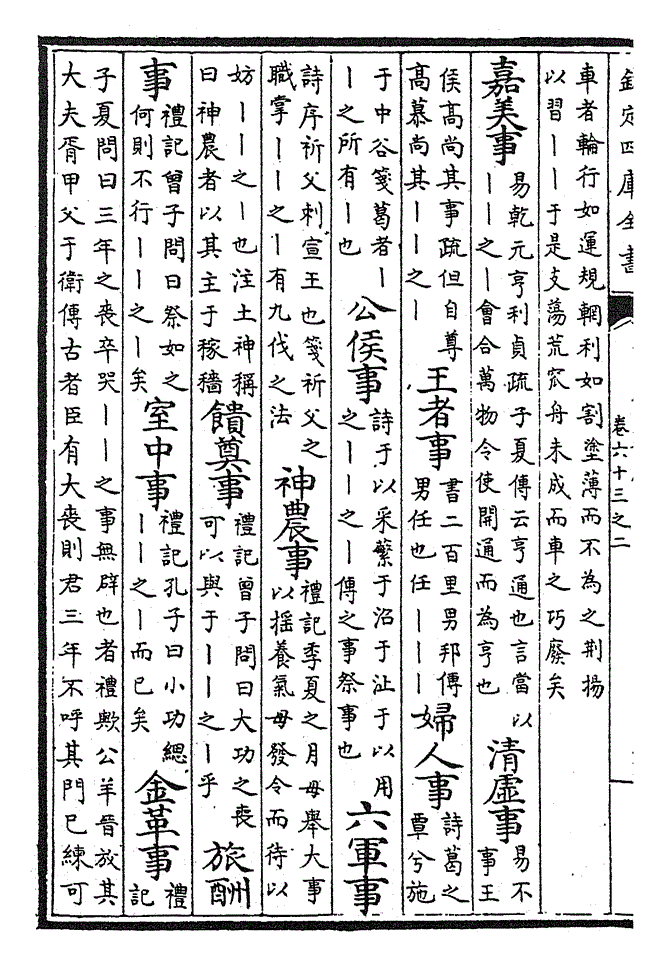 欽定四庫全書
卷六十三之二
車者輪行如運規輞利如割塗薄而不為之荆揚
以習丨丨于是支蕩荒宂舟未成而車之巧廢矣
嘉美事
易乾元亨利貞疏子夏傳云亨通也言當以
丨丨之丨會合萬物令使開通而為亨也
清虛事
易不
事王
侯高尚其事疏但自尊
高慕尚其丨丨之丨
王者事
書二百里男邦傳
男任也任丨丨丨
婦人事
詩葛之
覃兮施
于中谷箋葛者丨
丨之所有丨也
公侯事
詩于以采蘩于沼于沚于以用
之丨丨之丨傳之事祭事也
六軍事
詩序祈父刺宣王也箋祈父之
職掌丨丨之丨有九伐之法
神農事
禮記季夏之月毋舉大事
以摇養氣毋發令而待以
妨丨丨之丨也注土神稱
曰神農者以其主于稼穡
饋奠事
禮記曾子問曰大功之喪
可以與于丨丨之丨乎
旅酬
事
禮記曾子問曰祭如之
何則不行丨丨之丨矣
室中事
禮記孔子曰小功緦
丨丨之丨而已矣
金革事
禮
記
子夏問曰三年之喪卒哭丨丨之事無辟也者禮歟公羊晉放其
大夫胥甲父于衛傳古者臣有大喪則君三年不呼其門已練可